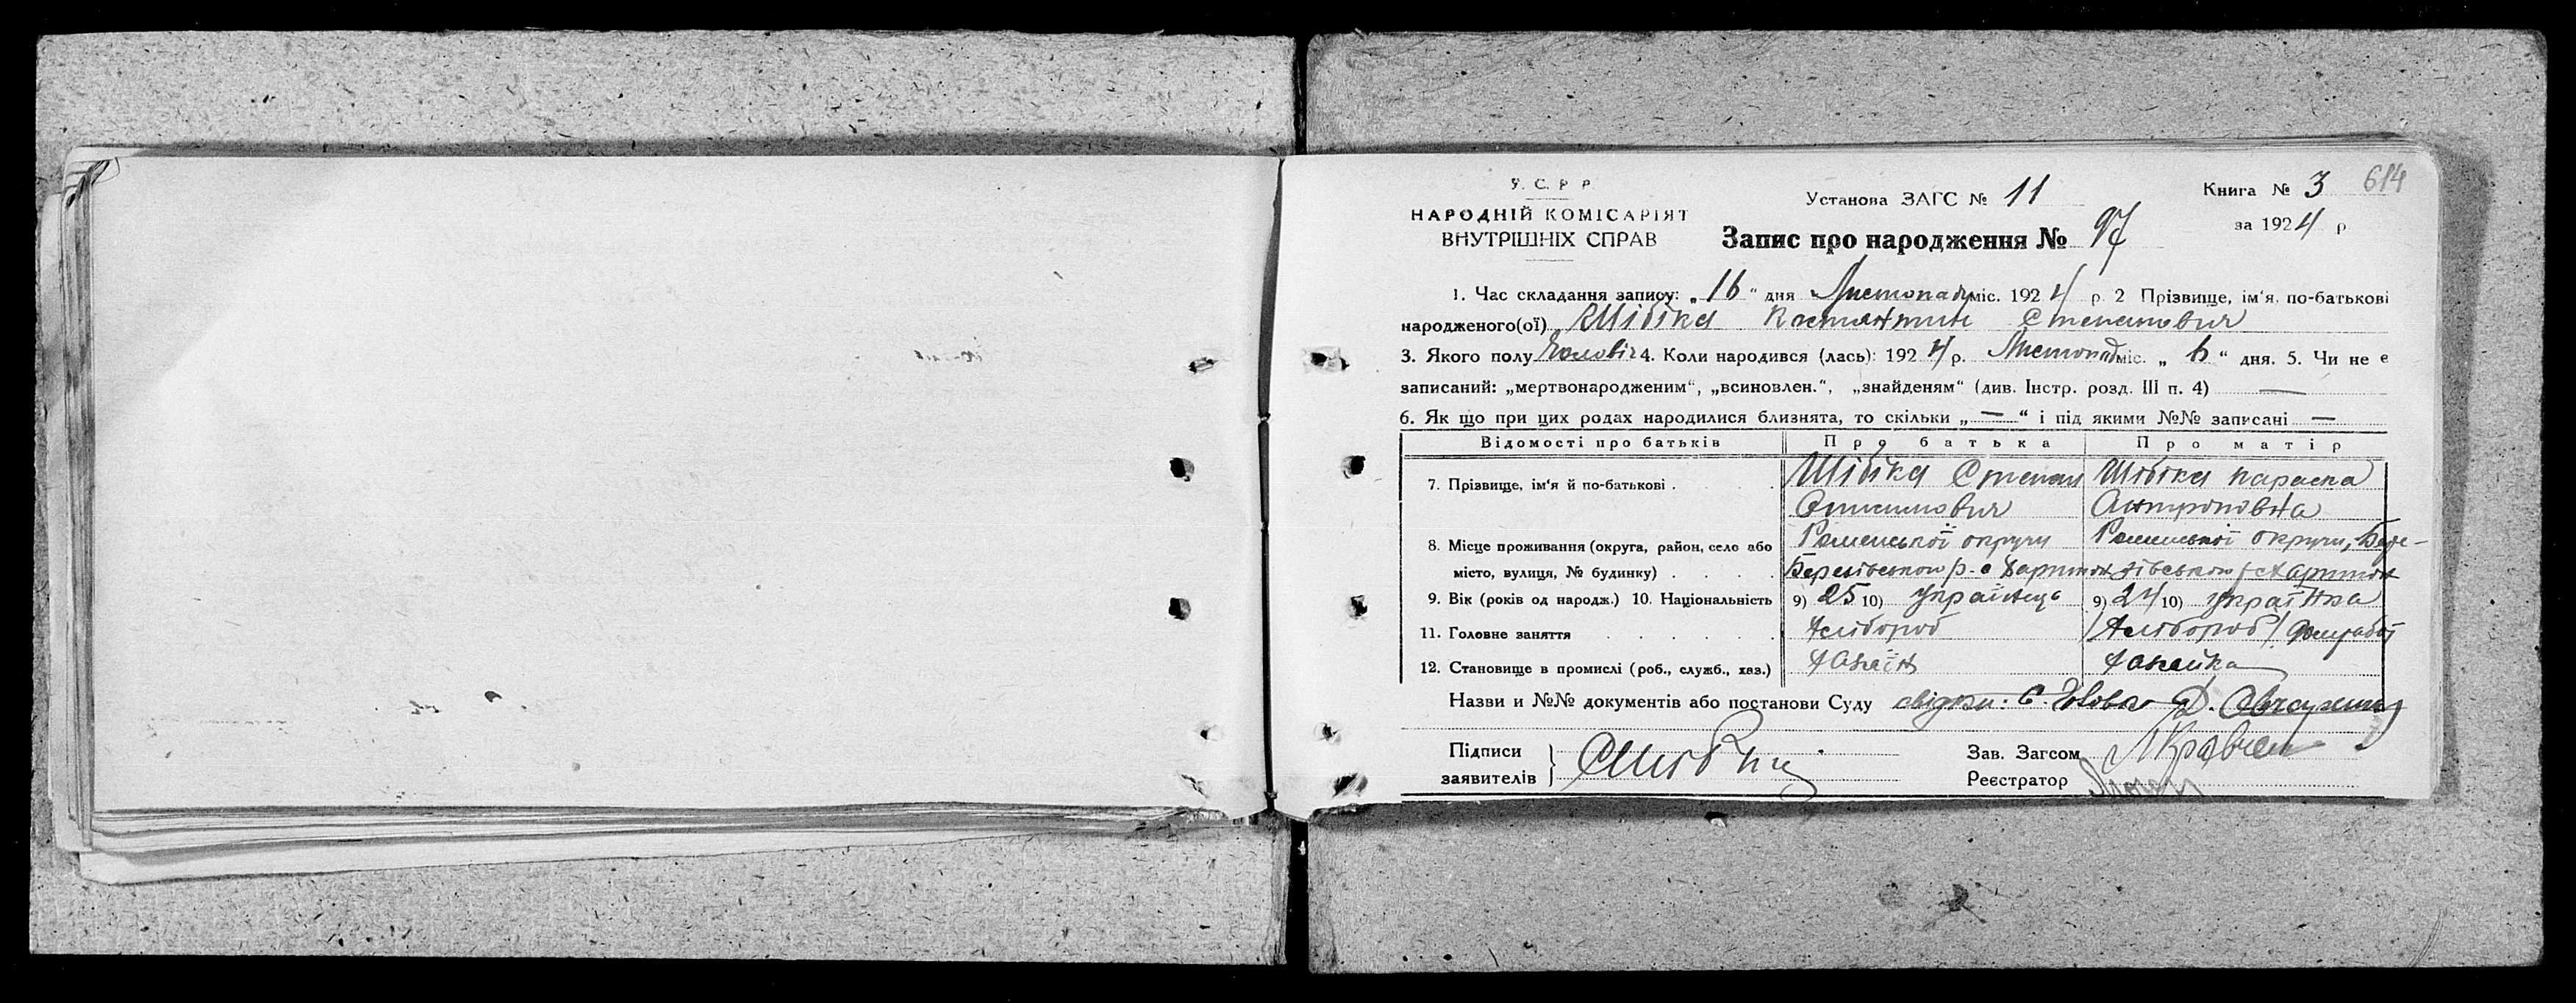 У. С. Р. Р.
НАРОДНІЙ КОМІСАРІЯТ
ВНУТРІШНІХ СПРАВ
Установа ЗАГС № 11
Книга № 3 614
за 1924 р
Запис про народження № 97
1. Час складання запису: „16“ дня Листопад міс. 1924 р. 2 Прізвище, ім‘я, по-батькові
народженого(ої) Шібіка Костянтин Степанович
3. Якого полу Чоловіч 4. Коли народився (лась): 1924 р. Листопад міс. „6“ дня. 5. Чи не є
записаний: „мертвонародженим“, „всиновлен.“, „знайденям“ (див. Інстр. розд. III п. 4) —
6. Як що при цих родах народилися близнята, то скільки „—“ і під якими №№ записані —
Відомості про батьків Про батька Про матір
7. Прізвище, ім‘я й по-батькові . Шібіка Степан Шібіка Параска
Антиповна
8. Місце проживання (округа, район, село або Роменської округи Роменської округи, Бере-
місто, вулиця, № будинку) . . . . Березівського р. с Харитон зівського р с Харитон
9. Вік (років од народж.) 10. Національність 9) 25 10) Українець 9) 24 10) українка
11. Головне заняття . . . . . Хлібороб /Хлібороб/
12. Становище в промислі (роб., служб., хаз.) Хазяїн Хазяйка
Назви и №№ документів або постанови Суду свідки: С. Д.
Підписи
заявителів
Зав. Загсом
Реєстратор